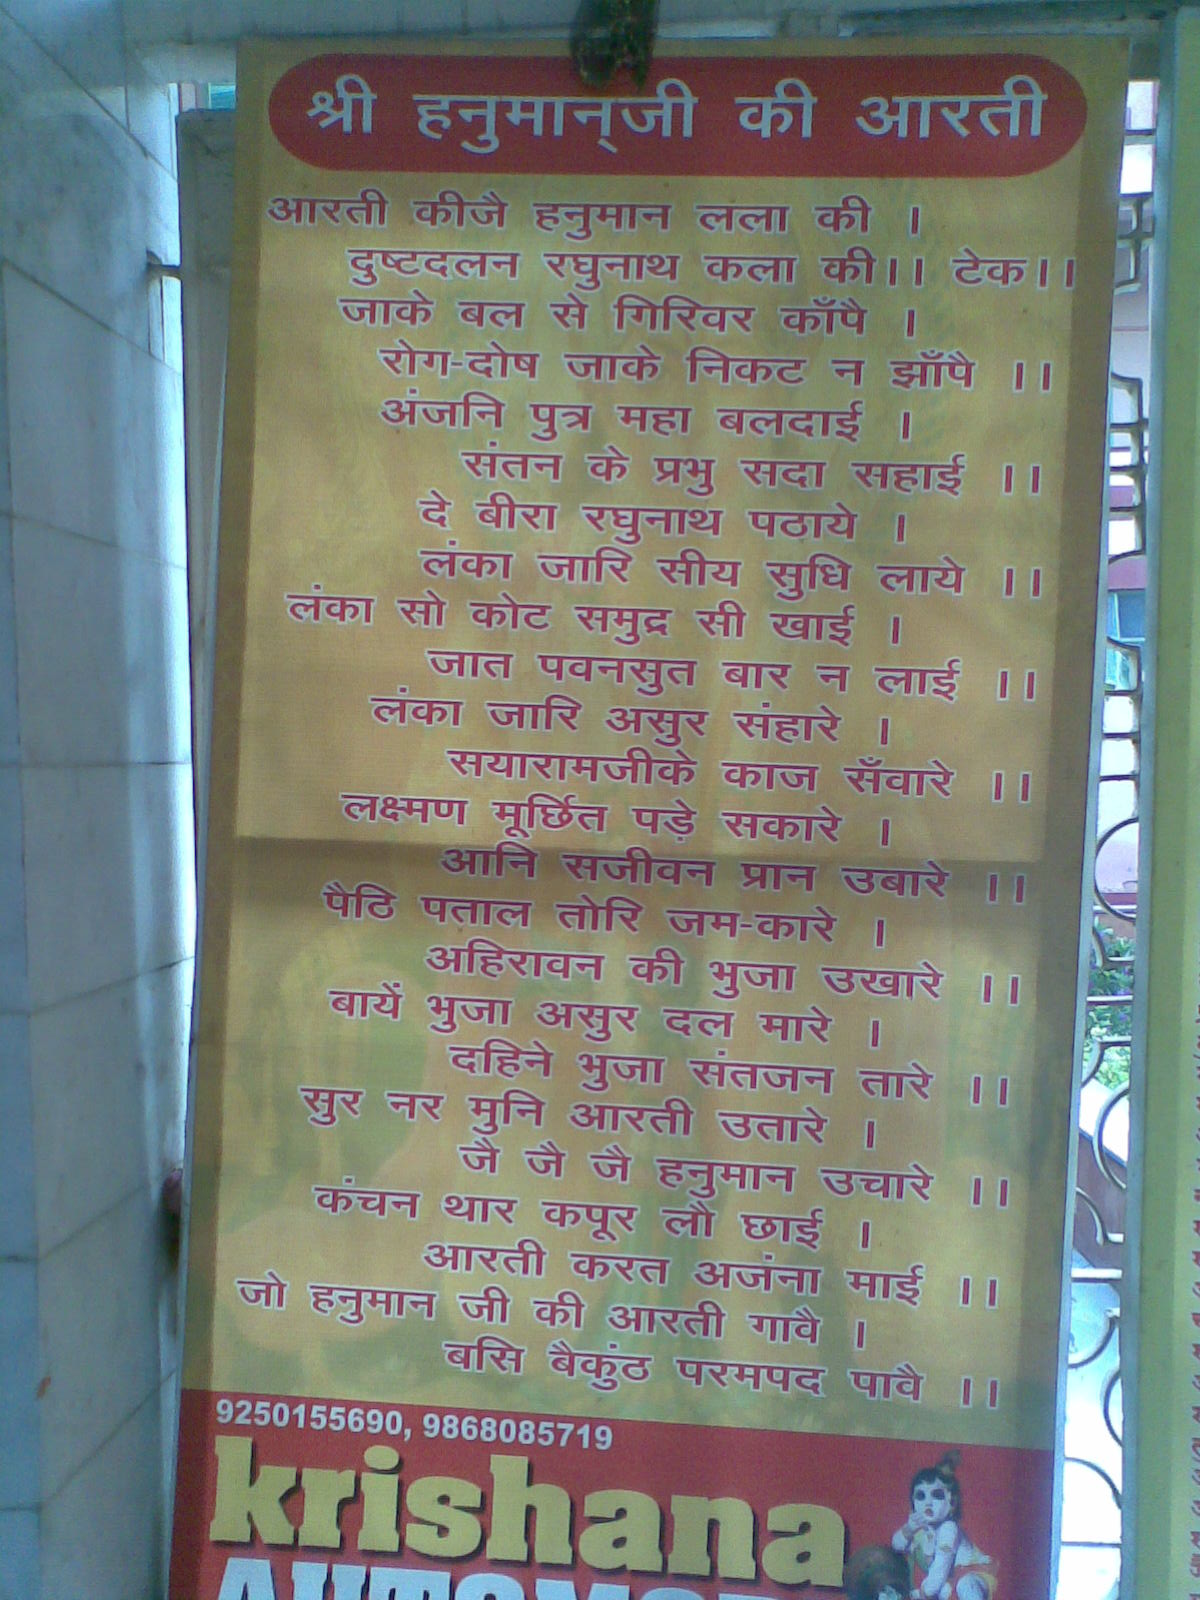 श्री हनुमान्जी की आरती
आरती कीजै हनुमान लला की ।
दुष्टदलन रघुनाथ कला की।। टेक।।
जाके बल से गिरिवर काँपै ।
रोग-दोष जाके निकट न झाँपै ।।
अंजनि पुत्र महा बलदाई ।
संतन के प्रभु सदा सहाई ।।
दे बीरा रघुनाथ पठाये ।
लंका जारि सीय सुधि लाये ।।
लंका सो कोट समुद्र सी खाई ।
जात पवनसुत बार न लाई ।।
लंका जारि असुर संहारे ।
सयारामजीके काज सँवारे ।।
लक्ष्मण मूर्छित पड़े सकारे ।
आनि सजीवन प्रान उबारे ।।
पैठि पताल तोरि जम-कारे ।
अहिरावन की भुजा उखारे ।।
बायें भुजा असुर दल मारे ।
दहिने भुजा संतजन तारे ।।
सुर नर मुनि आरती उतारे ।
जै जै जै हनुमान उचारे ।।
कंचन थार कपूर लौ छाई ।
आरती करत अजंना माई ।।
जो हनुमान जी की आरती गावै ।
बसि बैकुंठ परमपद पावै ।।
9250155690, 9868085719
krishana